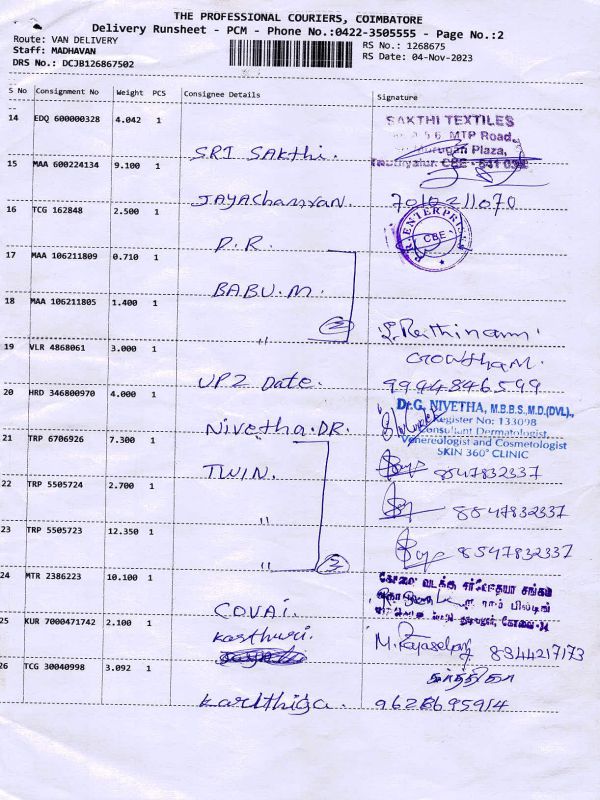 THE PROFESSIONAL COURIERS, COIMBATORE
Delivery Runsheet - PCM - Phone No.:0422-3505555 - Page No.:2
Route: VAN DELIVERY
Staff: MADHAVAN
DRS No.: DCJB126867502
RS No.: 1268675
RS Date: 04-Nov-2023
S No Consignment No Weight PCS Consignee Details Signature
14 EDQ 600000328 4.042 1
SRI SAKthi.
SAKTHI TEXTILES
MTP Road,
Murugan Plaza,
CBE - 641
15 MAA 600224134 9.100 1
JAYAChanran. 7010211070
16 TCG 162848 2.500 1
P.R.
ENTERPRISES
CBE
17 MAA 106211809 0.710 1
BABU.M.
18 MAA 106211805 1.400 1
" ②
S.Rathinam.
19 VLR 4868061 3.000 1
UPZ Date.
GOWTHAM.
9994846599
20 HRD 346800970 4.000 1
Nivetha.DR.
Dr.G. NIVETHA, M.B.B.S.,M.D.(DVL).,
Register No: 133098
Consultant Dermatologist,
Venereologist and Cosmetologist
SKIN 360° CLINIC
21 TRP 6706926 7.300 1
TWIN. 8547832337
22 TRP 5505724 2.700 1
" 8547832337
23 TRP 5505723 12.350 1
" ③ 8547832337
24 MTR 2386223 10.100 1
COVAI.
கோவை வடக்கு சர்வோதயா சங்கம்
25 KUR 7000471742 2.100 1
Kasthuri.
M. 8344217173
26 TCG 30040998 3.092 1
Karthiga.
கார்த்திகா
9626695914